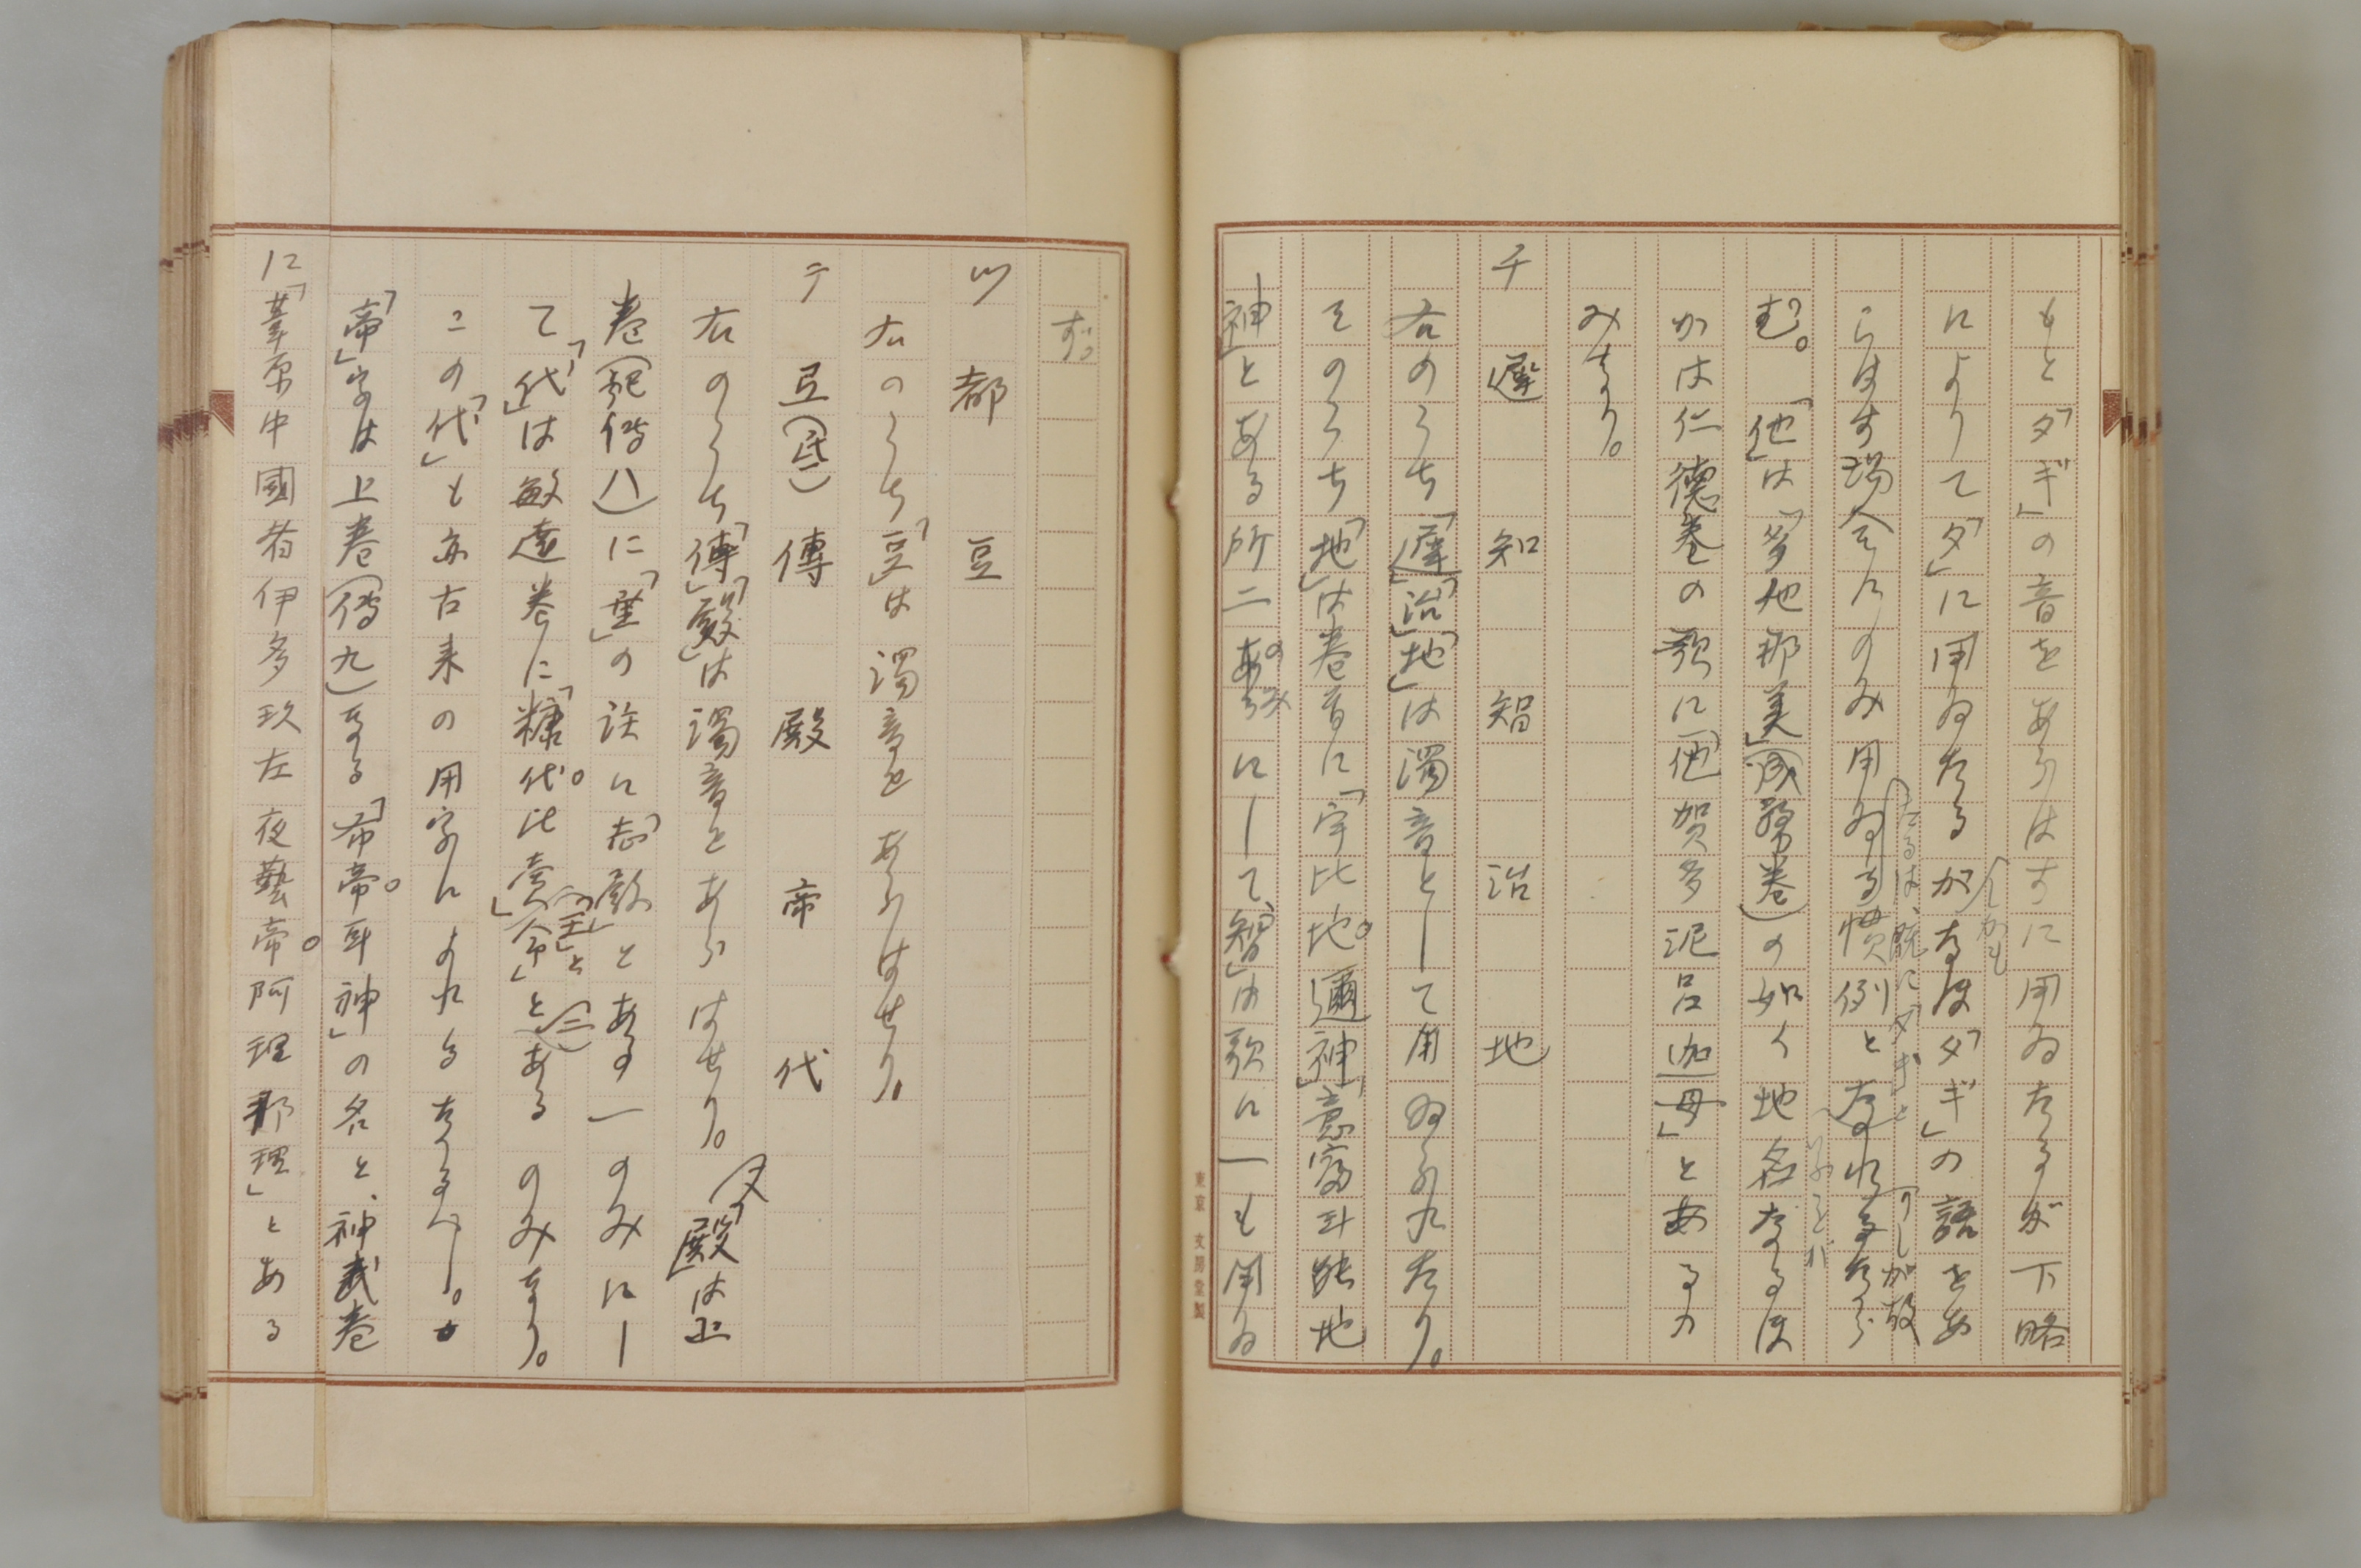 もと「タギ」の音をあらはすに用ゐたるが下略
によりて「タ」に用ゐたるがなほ「タギ」の語をあ
らはす場合にのみ用ゐる慣例と
しかも
たるは、既に「タギ」と
りしが故
む。「他」は「多他那美」(成務巻)の如く地名なるほ
かは仁徳巻の歌に「他賀多泥呂迦母」とあるの
みなり。
チ 遅 知 智 治 地
右のうち「遅」「治」「地」は濁音として用ゐられたり。
そのうち「地」は巻首に「宇比地邇神」「意富斗能地
神」とある所二のみにして、「智」は歌に一も用ゐ
東京 文房堂製
ず。
ツ 都 豆
右のうち「豆」は濁音をあらはせり。
テ 弖(氐) 傳 殿 帝 代
右のうち「傳」「殿」は濁音をあらはせり。又「殿」は上
巻(記傳八)に「堂」の訓に「志殿」とある一のみにし
て「代」は敏達巻に「糠代比賣命」とあるのみなり。
「王」と
この「代」も亦古来の用字によれるなるべし。
「帝」字は上巻(傳九)なる「布帝耳神」の名と、神武巻
に「葦原中國者伊多玖左夜藝帝阿理那理」とある